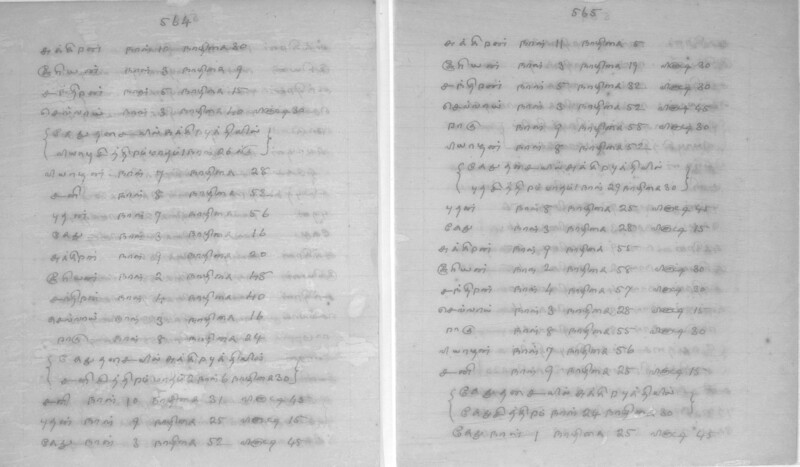 564
சுக்கிரன் நாள் 10 நாழிகை 30
சூரியன் நாள் 3 நாழிகை 9
சந்திரன் நாள் 5 நாழிகை 15
செவ்வாய் நாள் 3 நாழிகை 40 விநாடி 30
{ கேது தசையில் சுக்கிரபுத்தியில்
வியாழ சித்திரம் மாதம் 1 நாள் 26 }
வியாழன் நாள் 7 நாழிகை 28
சனி நாள் 8 நாழிகை 52
புதன் நாள் 7 நாழிகை 56
கேது நாள் 3 நாழிகை 16
சுக்கிரன் நாள் 9 நாழிகை 20
சூரியன் நாள் 2 நாழிகை 45
சந்திரன் நாள் 4 நாழிகை 40
செவ்வாய் நாள் 3 நாழிகை 16
ராகு நாள் 8 நாழிகை 24
{ கேது தசையில் சுக்கிரபுத்தியில்
சனி சித்திரம் மாதம் 2 நாள் 6 நாழிகை 30 }
சனி நாள் 10 நாழிகை 31 விநாடி 45
புதன் நாள் 9 நாழிகை 25 விநாடி 15
கேது நாள் 3 நாழிகை 52 விநாடி 45
565
சுக்கிரன் நாள் 11 நாழிகை 5
சூரியன் நாள் 3 நாழிகை 19 விநாடி 30
சந்திரன் நாள் 5 நாழிகை 32 விநாடி 30
செவ்வாய் நாள் 3 நாழிகை 52 விநாடி 45
ராகு நாள் 9 நாழிகை 58 விநாடி 30
வியாழன் நாள் 8 நாழிகை 52
{ கேது தசையில் சுக்கிரபுத்தியில்
புத சித்திரம் மாதம் 1 நாள் 29 நாழிகை 30 }
புதன் நாள் 8 நாழிகை 25 விநாடி 45
கேது நாள் 3 நாழிகை 28 விநாடி 15
சுக்கிரன் நாள் 9 நாழிகை 55
சூரியன் நாள் 2 நாழிகை 58 விநாடி 30
சந்திரன் நாள் 4 நாழிகை 57 விநாடி 30
செவ்வாய் நாள் 3 நாழிகை 28 விநாடி 15
ராகு நாள் 8 நாழிகை 55 விநாடி 30
வியாழன் நாள் 7 நாழிகை 56
சனி நாள் 9 நாழிகை 25 விநாடி 15
{ கேது தசையில் சுக்கிரபுத்தியில்
கேது சித்திரம் நாள் 24 நாழிகை 30 }
கேது நாள் 1 நாழிகை 25 விநாடி 45